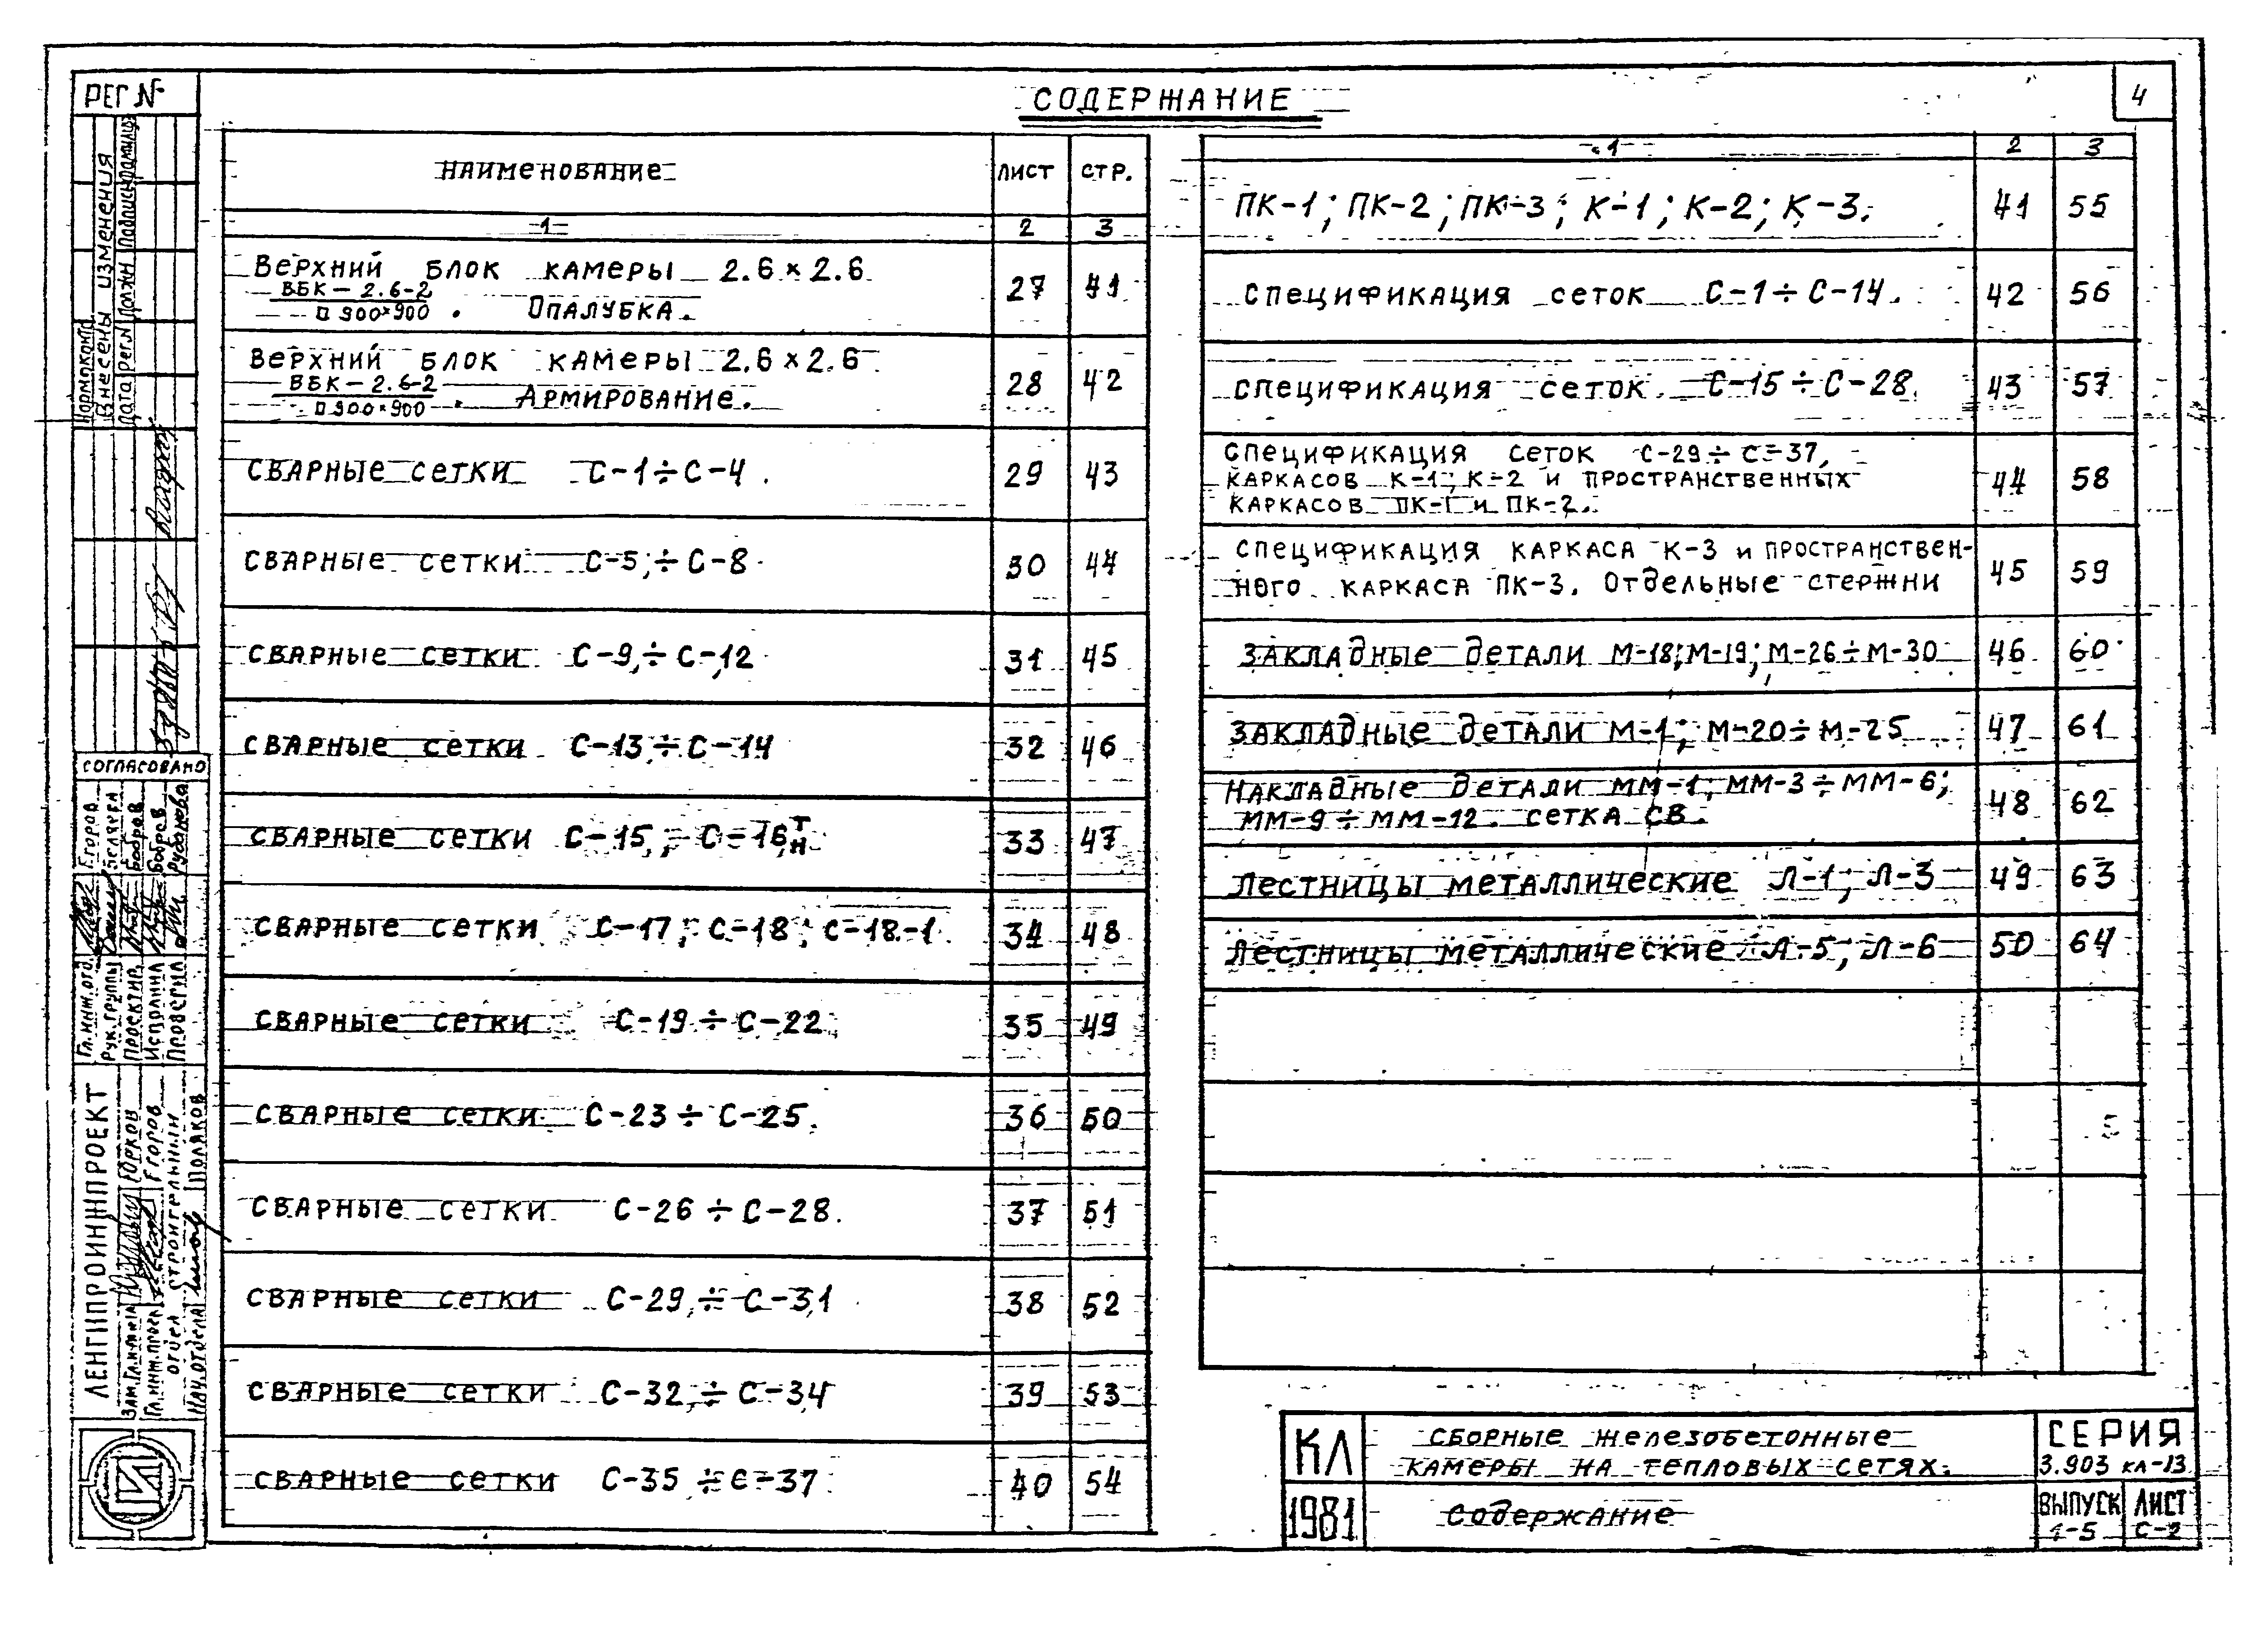 РЕГ №
СОДЕРЖАНИЕ
4
НАИМЕНОВАНИЕ ЛИСТ СТР.
1 2 3
ВЕРХНИЙ БЛОК КАМЕРЫ 2.6×2.6 27 41
ВБК-2.6-2
□ 900×900 . ОПАЛУБКА.
ВЕРХНИЙ БЛОК КАМЕРЫ 2.6×2.6 28 42
ВБК-2.6-2
□ 900×900 . АРМИРОВАНИЕ.
СВАРНЫЕ СЕТКИ С-1÷С-4. 29 43
СВАРНЫЕ СЕТКИ С-5÷С-8 30 44
СВАРНЫЕ СЕТКИ С-9÷С-12 31 45
СВАРНЫЕ СЕТКИ С-13÷С-14 32 46
СВАРНЫЕ СЕТКИ С-15; С-16 Т Н 33 47
СВАРНЫЕ СЕТКИ С-17; С-18; С-18-1 34 48
СВАРНЫЕ СЕТКИ С-19÷С-22 35 49
СВАРНЫЕ СЕТКИ С-23÷С-25. 36 50
СВАРНЫЕ СЕТКИ С-26÷С-28. 37 51
СВАРНЫЕ СЕТКИ С-29÷С-31 38 52
СВАРНЫЕ СЕТКИ С-32÷С-34 39 53
СВАРНЫЕ СЕТКИ С-35÷С-37 40 54
1 2 3
ПК-1; ПК-2; ПК-3; К-1; К-2; К-3. 41 55
СПЕЦИФИКАЦИЯ СЕТОК С-1÷С-14. 42 56
СПЕЦИФИКАЦИЯ СЕТОК С-15÷С-28. 43 57
СПЕЦИФИКАЦИЯ СЕТОК С-29÷С-37,
КАРКАСОВ К-1; К-2 И ПРОСТРАНСТВЕННЫХ 44 58
КАРКАСОВ ПК-1 И ПК-2.
СПЕЦИФИКАЦИЯ КАРКАСА К-3 И ПРОСТРАНСТВЕН-
НОГО КАРКАСА ПК-3. ОТДЕЛЬНЫЕ СТЕРЖНИ 45 59
ЗАКЛАДНЫЕ ДЕТАЛИ М-18; М-19; М-26÷М-30 46 60
ЗАКЛАДНЫЕ ДЕТАЛИ М-1; М-20÷М-25 47 61
НАКЛАДНЫЕ ДЕТАЛИ ММ-1; ММ-3÷ММ-6;
ММ-9÷ММ-12. СЕТКА СВ. 48 62
ЛЕСТНИЦЫ МЕТАЛЛИЧЕСКИЕ Л-1; Л-3 49 63
ЛЕСТНИЦЫ МЕТАЛЛИЧЕСКИЕ Л-5; Л-6 50 64
КЛ
1981
СБОРНЫЕ ЖЕЛЕЗОБЕТОННЫЕ
КАМЕРЫ НА ТЕПЛОВЫХ СЕТЯХ.
СОДЕРЖАНИЕ
СЕРИЯ
3.903 КЛ-13
ВЫПУСК ЛИСТ
1-5 С-2
Нормоконтр.
ВНЕСЕНЫ ИЗМЕНЕНИЯ
Дата Рег.№ Должн Подпись Фамилия
СОГЛАСОВАНО
Гл.инж.отд. Егоров
Рук.группы
Проектир. Бобров
Исполнил Бобров
Проверил Рубанева
ЛЕНГИПРОИНЖПРОЕКТ
Зам.гл.инж. Юрков
Гл.инж.проек Егоров
отдел строительный
Нач.отдела Поляков